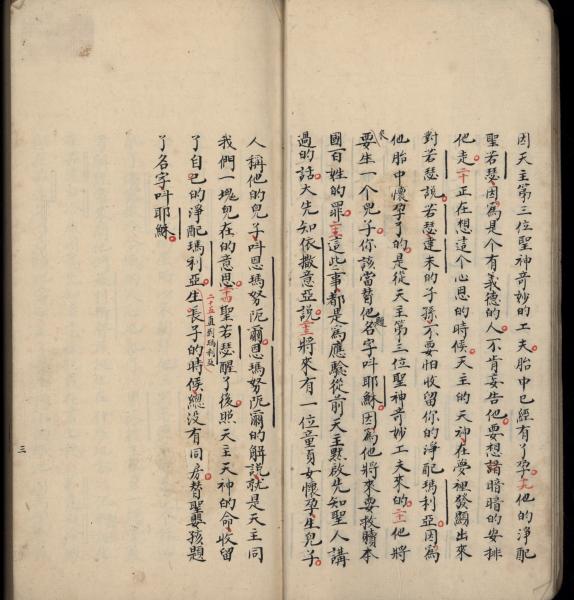 因天主第三位聖神奇妙的工夫胎中已經有了孕。十九他的淨配
聖若瑟。因為是个有義德的人。不肯妄告他。要想諸暗暗的安排
他走。二十正在想這个心思的時候。天主的天神在夢裡發顯出來
對若瑟說。若瑟達未的子孫不要怕收留你的淨配瑪利亞。因為
他胎中懷孕了的。是從天主第三位聖神奇妙工夫來的。二一他將
來要生一个兒子。你該當替他題名字呌耶穌。因為他將來要救贖本
國百姓的罪。二二這些事都是為應驗從前天主默啟先知聖人講
過的話。大先知依撒意亞說。二三將來有一位童貞女懷孕生兒子。
人稱他的兒子呌恩瑪努阨爾。恩瑪努阨爾的解說就是天主同
我們一塊兒在的意思。二四聖若瑟醒了後。照天主天神的命收留
了自己的淨配瑪利亞。二十五直到瑪利亞生長子的時候總沒有同房。替聖嬰孩題
了名字呌耶穌。
三